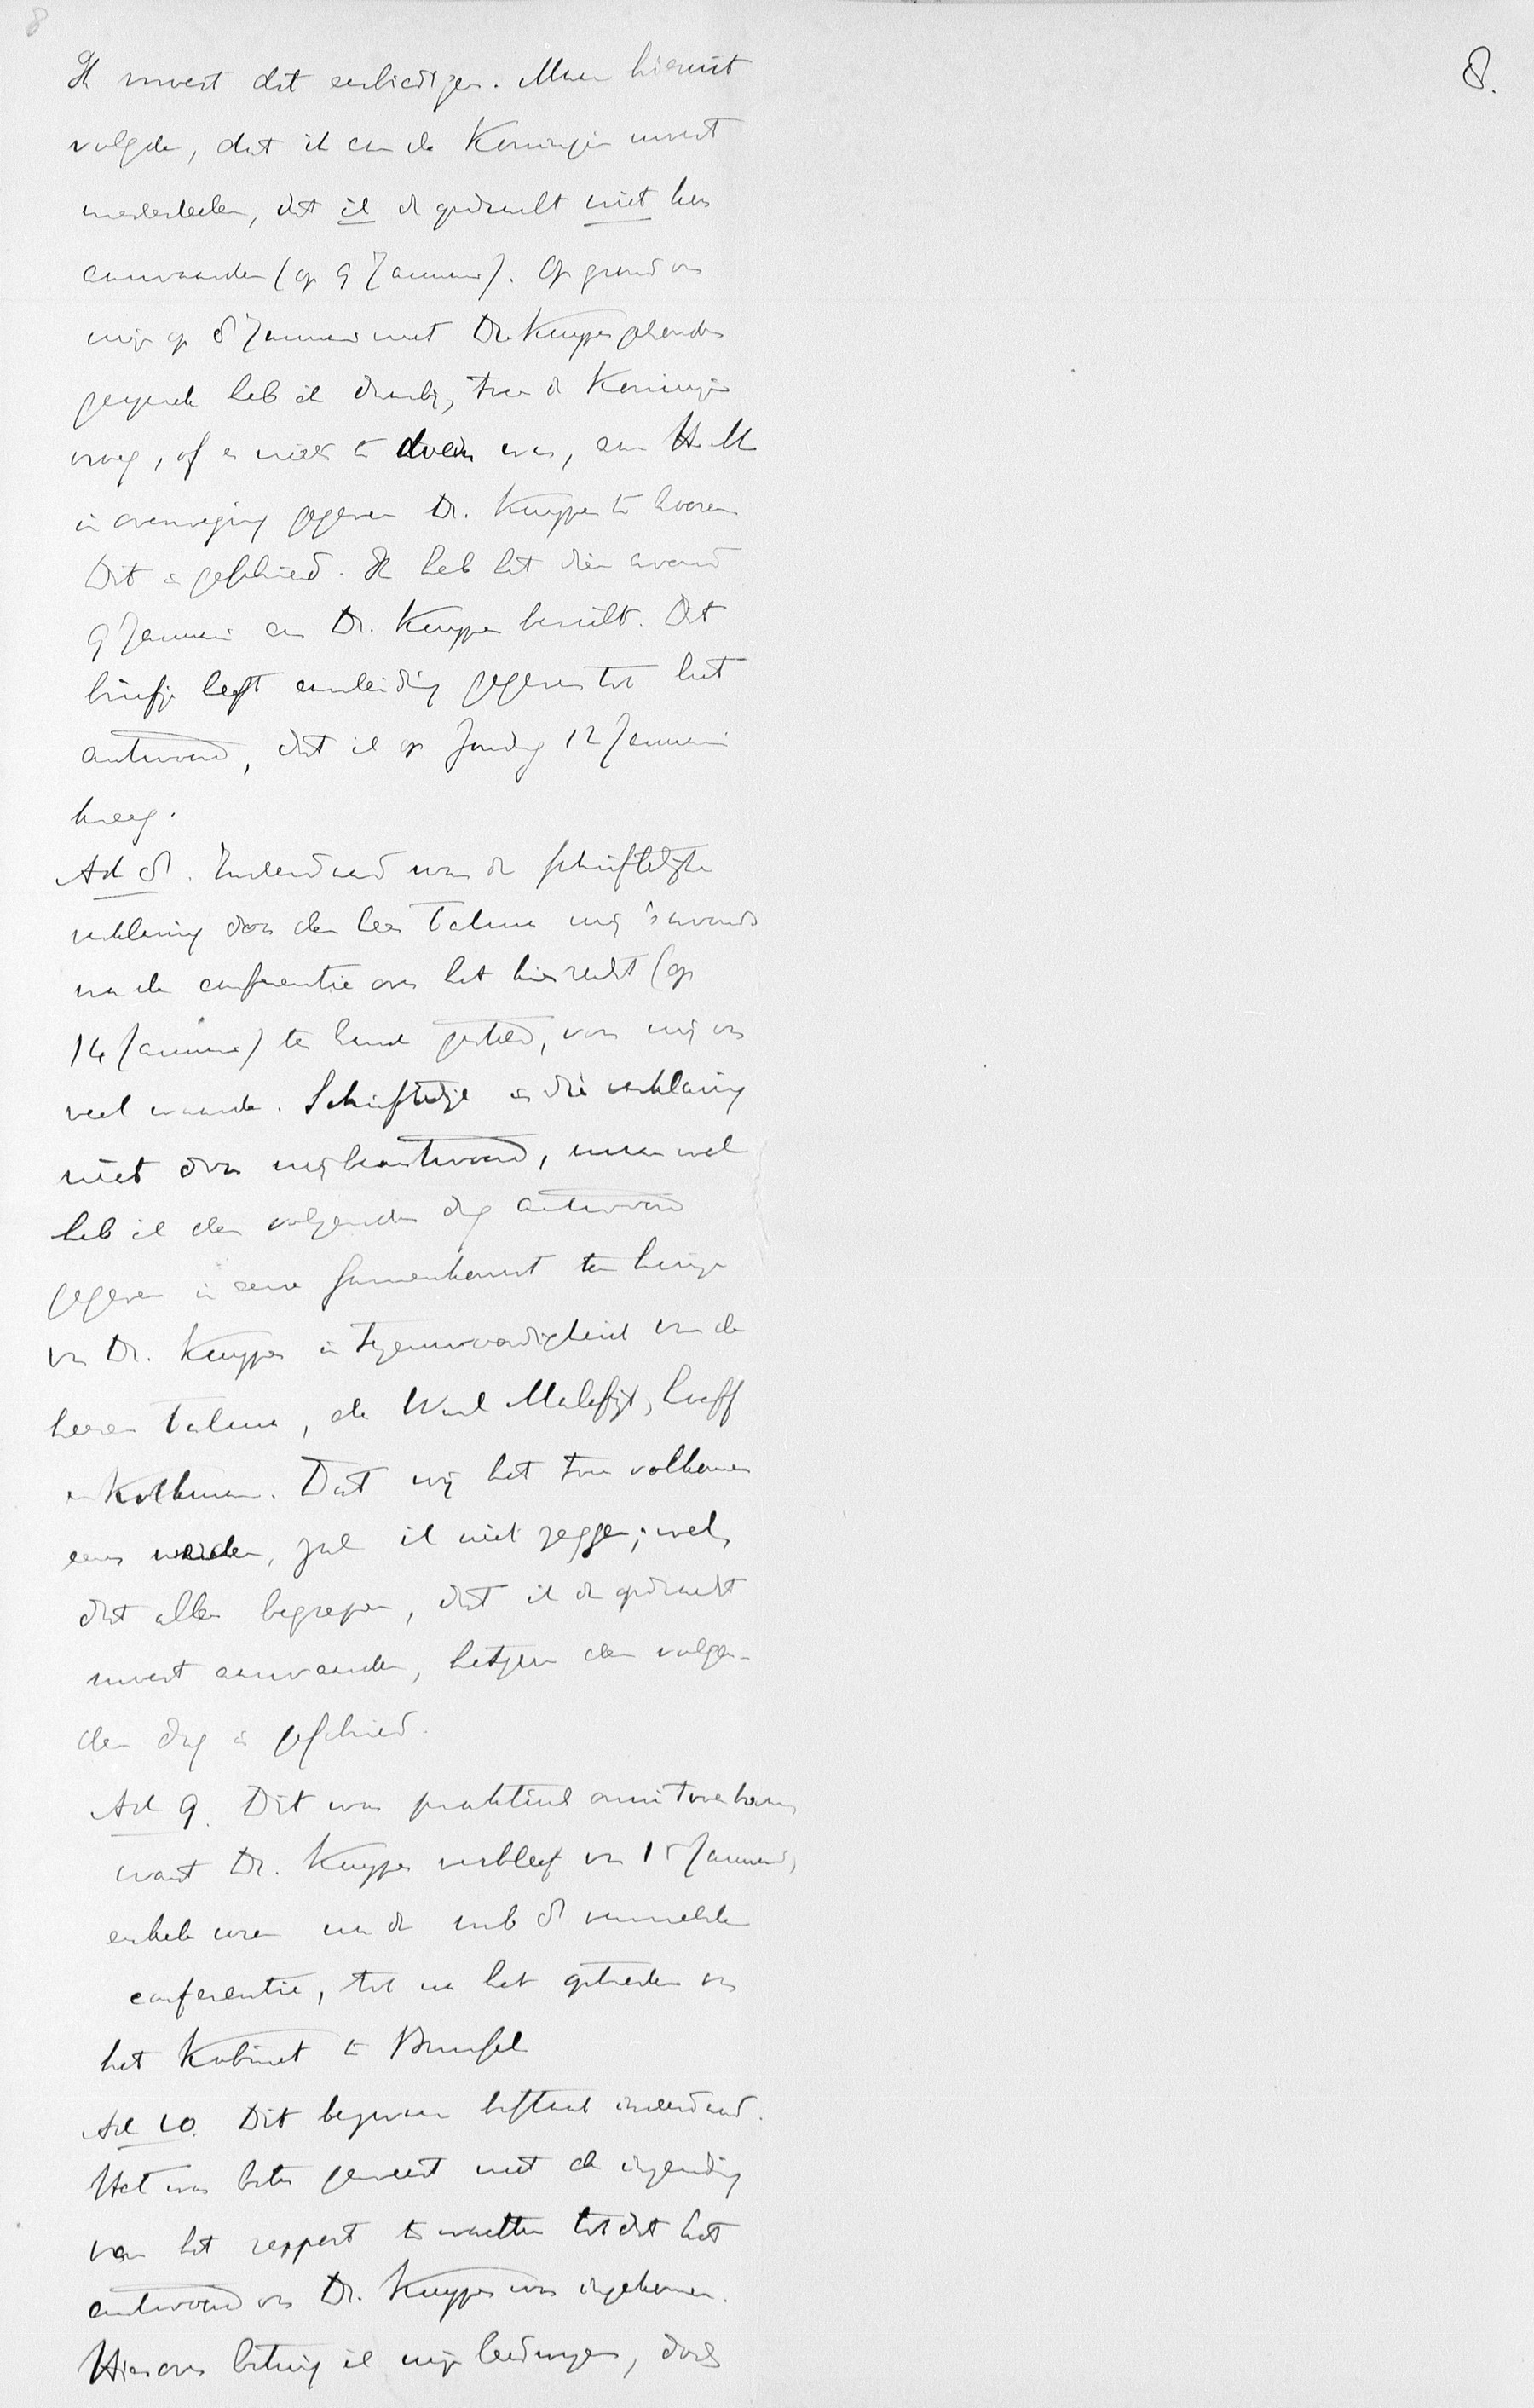 8
8.
Ik moest dit eerbiedigen. Maar hieruit
volgde, dat ik aan de Koningin moest
mededeelen, dat ik de opdracht niet kon
aanvaarden (op 9 Januari). Op grond van
mijn op 8 Januari met Dr. Kuyper gehouden
gesprek heb ik daarbij, toen de Koningin
vroeg, of er niets te doen was, aan H.M.
in overweging gegeven Dr. Kuyper te hooren.
Dit is geschied. Ik heb het dien avond
9 Januari aan Dr. Kuyper bericht. Dit
briefje heeft aanleiding gegeven tot het
antwoord, dat ik op Zondag 12 Januari
kreeg.
Ad 8. Inderdaad was de schriftelijke
verklaring door den heer Talma mij 's avonds
na de conferentie over het kiesrecht (op
14 Januari) ter hand gesteld, voor mij van
veel waarde. Schriftelijk is die verklaring
niet door mij beantwoord, maar wel
heb ik den volgenden dag antwoord
gegeven in eene samenkomst ten huize
van Dr. Kuyper in tegenwoordigheid van de
heeren Talma, de Waal Malefijt, Graaff
en Kolkman. Dat wij het toen volkomen
eens werden, zal ik niet zeggen; wel,
dat allen begrepen, dat ik de opdracht
moest aanvaarden, hetgeen den volgen-
den dag is geschied.
Ad 9. Dit was praktisch onuitvoerbaar,
want Dr. Kuyper verbleef van 15 Januari,
enkele uren na de sub 8 vermelde
conferentie, tot na het optreden van
het Kabinet te Brussel
Ad 10. Dit bezwaar bestaat inderdaad.
Het was beter geweest met de inzending
van het rapport te wachten totdat het
antwoord van Dr. Kuyper was ingekomen.
Hierover betuig ik mijn leedwezen, doch